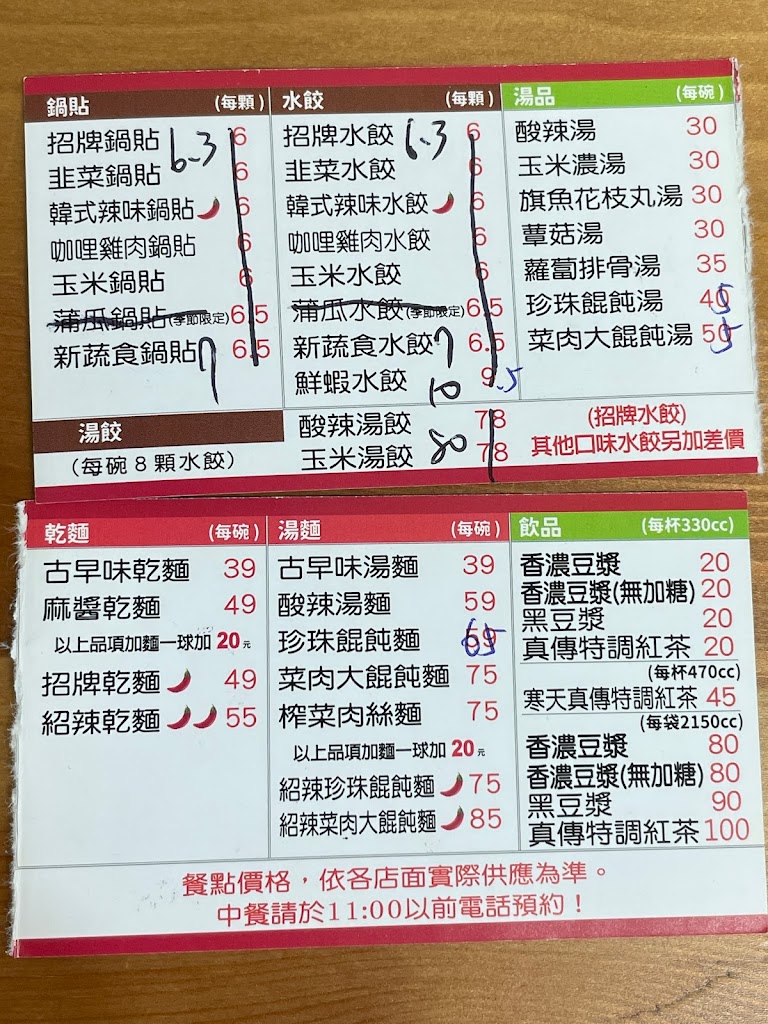 鍋貼 (每顆)
招牌鍋貼 6 6.3
韭菜鍋貼 6
韓式辣味鍋貼 6
咖哩雞肉鍋貼 6
玉米鍋貼 6
蒲瓜鍋貼(季節限定) 6.5
新蔬食鍋貼 6.5 7
水餃 (每顆)
招牌水餃 6 6.3
韭菜水餃 6
韓式辣味水餃 6
咖哩雞肉水餃 6
玉米水餃 6
蒲瓜水餃(季節限定) 6.5
新蔬食水餃 6.5 7
鮮蝦水餃 9.5 10
湯品 (每碗)
酸辣湯 30
玉米濃湯 30
旗魚花枝丸湯 30
蕈菇湯 30
蘿蔔排骨湯 35
珍珠餛飩湯 40 5
菜肉大餛飩湯 50 5
湯餃
(每碗8顆水餃)
酸辣湯餃 78
玉米湯餃 78 80
(招牌水餃)
其他口味水餃另加差價
乾麵 (每碗)
古早味乾麵 39
麻醬乾麵 49
以上品項加麵一球加 20元
招牌乾麵 49
紹辣乾麵 55
湯麵 (每碗)
古早味湯麵 39
酸辣湯麵 59
珍珠餛飩麵 59 65
菜肉大餛飩麵 75
榨菜肉絲麵 75
以上品項加麵一球加 20元
紹辣珍珠餛飩麵 75
紹辣菜肉大餛飩麵 85
飲品 (每杯330cc)
香濃豆漿 20
香濃豆漿(無加糖) 20
黑豆漿 20
真傳特調紅茶 20
(每杯470cc)
寒天真傳特調紅茶 45
(每袋2150cc)
香濃豆漿 80
香濃豆漿(無加糖) 80
黑豆漿 90
真傳特調紅茶 100
餐點價格，依各店面實際供應為準。
中餐請於11:00以前電話預約！